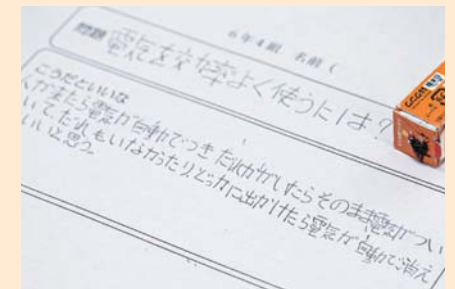 6年4組 名前(
問題 電気を交力率よく使うには?
こうだといいな
人がきたら電気が自動でつきだれかがいたらそのまま電気がつい
いてだれもいなかったり、どっかに出かけたら電気が自動で消え
いいと思う。